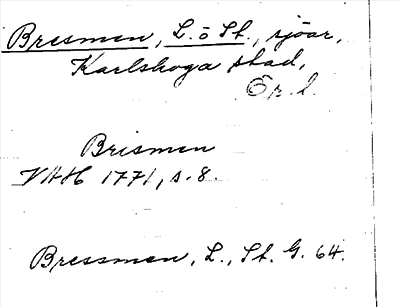 Bresmen, L. o St., sjöar,
Karlskoga stad,
Ör. l.
Brismen
VAH 1771, s. 8.
Bressmen, L., St. G. 64.